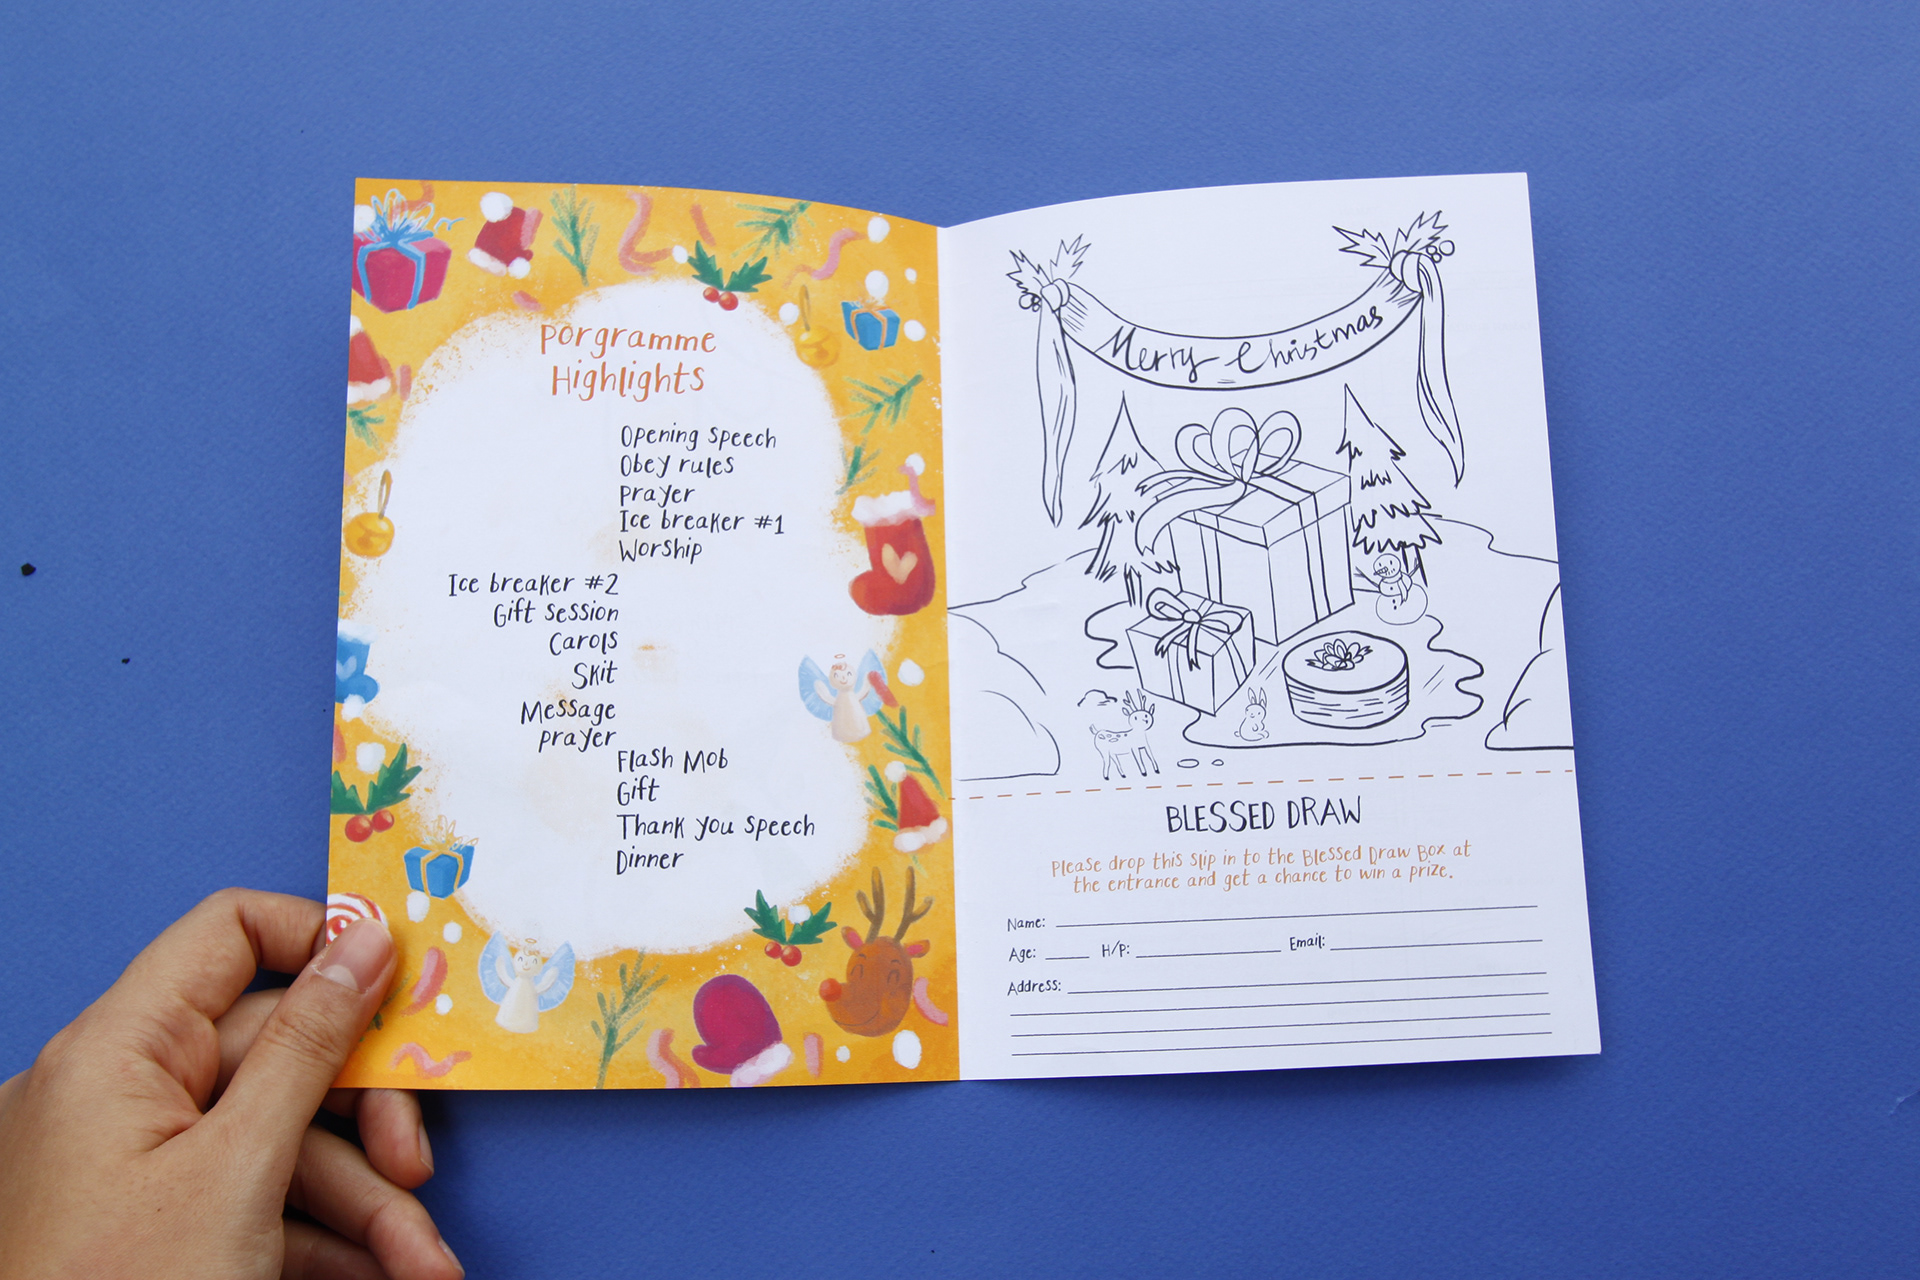 Porgramme
Highlights
Opening Speech
Obey rules
Prayer
Ice breaker #1
Worship
Ice breaker #2
Gift Session
Carols
Skit
Message
prayer
Flash Mob
Gift
Thank you Speech
Dinner
Merry Christmas
BLESSED DRAW
Please drop this slip in to the Blessed Draw Box at
the entrance and get a chance to win a prize.
Name:
Age: H/P: Email:
Address: